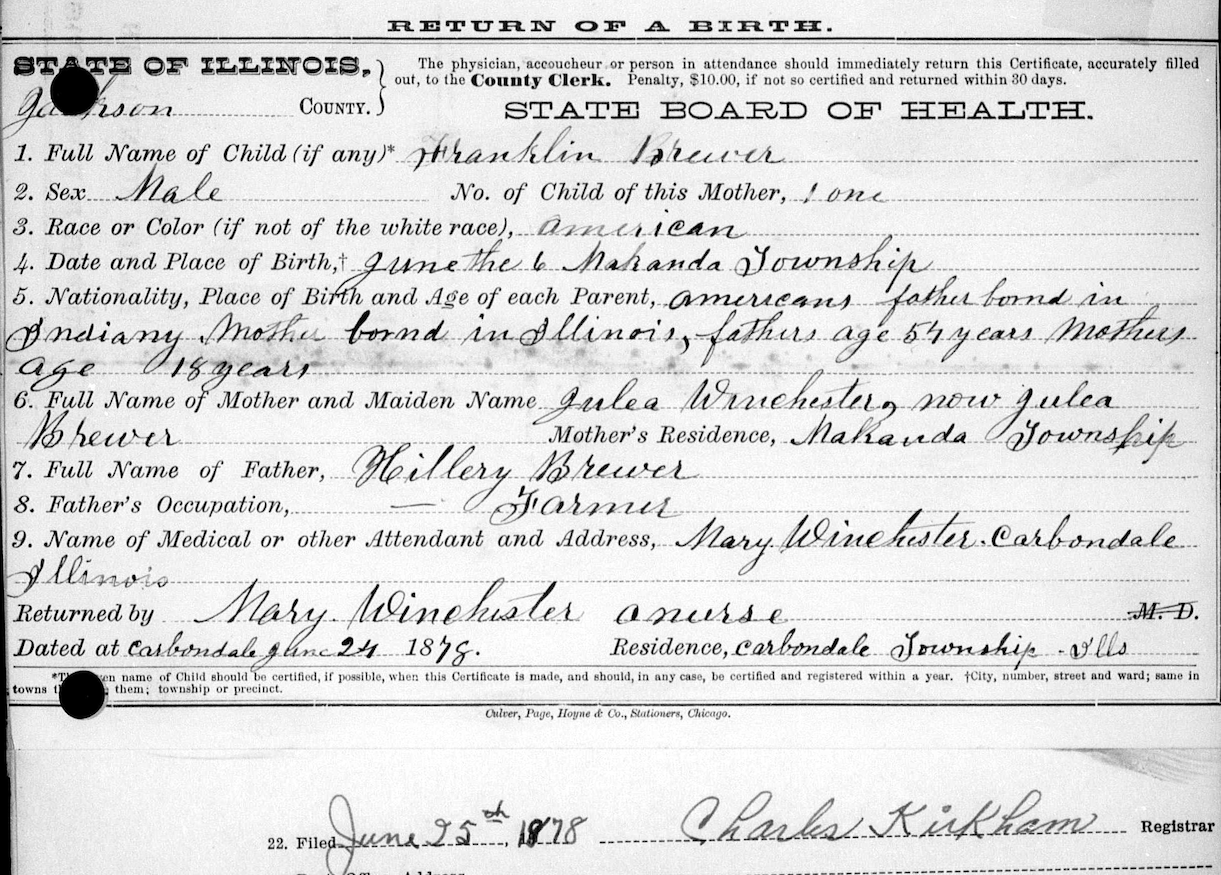 RETURN OF A BIRTH.
STATE OF ILLINOIS,
Jackson COUNTY.
The physician, accoucheur or person in attendance should immediately return this Certificate, accurately filled
out, to the County Clerk. Penalty, $10.00, if not so certified and returned within 30 days.
STATE BOARD OF HEALTH.
1. Full Name of Child (if any)* Franklin Brewer
2. Sex Male No. of Child of this Mother, 1 one
3. Race or Color (if not of the white race), american
4. Date and Place of Birth,† June the 6 Makanda Township
5. Nationality, Place of Birth and Age of each Parent, americans father bornd in
Indiany Mother bornd in Illinois, fathers age 57 years Mothers
age 18 years
6. Full Name of Mother and Maiden Name Julea Winchester, now Julea
Brewer Mother's Residence, Makanda Township
7. Full Name of Father, Hillery Brewer
8. Father's Occupation, — Farmer
9. Name of Medical or other Attendant and Address, Mary Winchester. Carbondale
Illinois
Returned by Mary Winchester a nurse M. D.
Dated at Carbondale June 24 1878. Residence, Carbondale Township - Ills
*The given name of Child should be certified, if possible, when this Certificate is made, and should, in any case, be certified and registered within a year. †City, number, street and ward; same in
towns them; township or precinct.
Culver, Page, Hoyne & Co., Stationers, Chicago.
22. Filed June 25th, 1878 Charles Kirkham Registrar